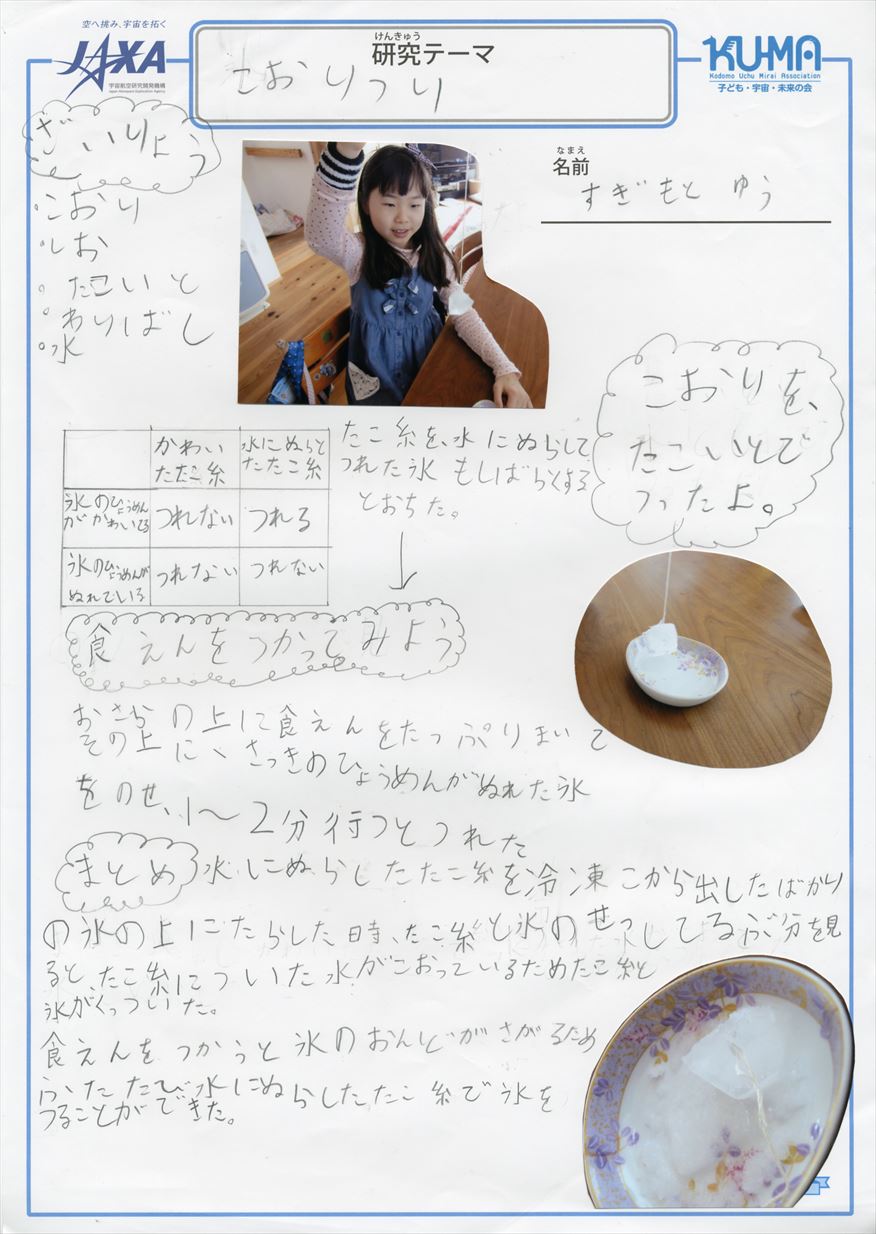 空へ挑み、宇宙を拓く
JAXA
宇宙航空研究開発機構
Japan Aerospace Exploration Agency
けんきゅう
研究テーマ
こおりつり
KU-MA
Kodomo Uchu Mirai Association
子ども・宇宙・未来の会
ざいりょう
こおり
しお
たこいと
わりばし
水
なまえ
名前
すぎもと ゆう
こおりを、
たこいとで
つったよ。
かわい
たたこ糸
水にぬらし
たたこ糸
氷のひょうめん
がかわいてる
つれない
つれる
氷のひょうめんが
ぬれている
つれない
つれない
たこ糸を、水にぬらして
つれた氷もしばらくする
とおちた。
食えんをつかってみよう
おさらの上に食えんをたっぷりまいて
その上に、さっきのひょうめんがぬれた氷
をのせ、1〜2分待つとつれた
まとめ 水にぬらしたたこ糸を冷凍こから出したばかり
の氷の上にたらした時、たこ糸と氷のせっしてるぶ分を見
ると、たこ糸についた水がこおっているためたこ糸と
氷がくっついた。
食えんをつかうと氷のおんどがさがるため
ふたたび水にぬらしたたこ糸で氷を
つることができた。